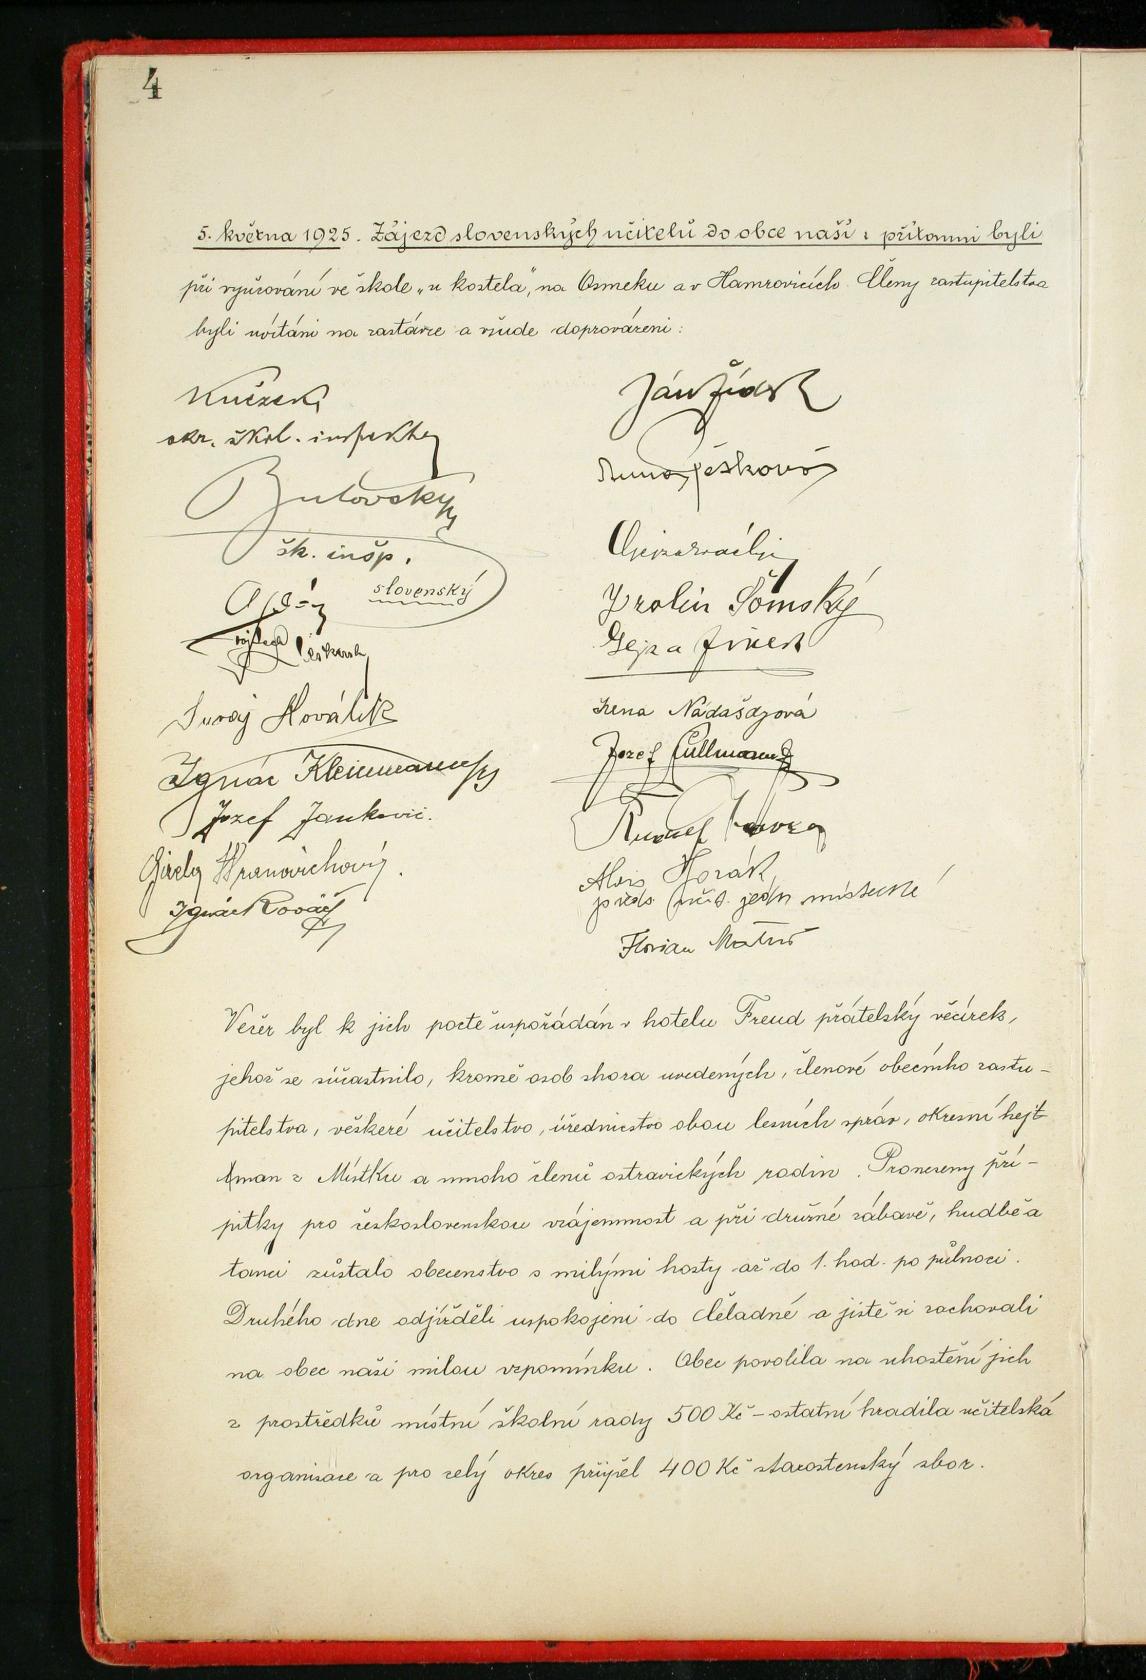 4
5. května 1925. Zájezd slovenských učitelů do obce naší: přítomni byli
při vyučování ve škole „u kostela", na Osmeku a v Hamrovicích. Členy zastupitelstva
byli uvítáni na zastávce a všude doprovázeni:
okr. škol. inspektor
šk. inšp.
slovenský
Juraj Koválik
Ignác
Jozef Jankovič.
Ignác Kováč
Ján Židek
Šomský
Gejza
Irena Nádašdyová
Jozef Cullmann
Rudolf
Alois Horák
předs. učit. jedn. místecké
Florian
Večer byl k jich poctě uspořádán v hotelu Freud přátelský věčírek,
jehož se súčastnilo, kromě osob shora uvedených, členové obecního zastu-
pitelstva, věškeré učitelstvo, úřednictvo obou lesních správ, okresní hejt
man z Místku a mnoho členů ostravických rodin. Proneseny pří-
pitky pro československou vzájemnost a při družné zábavě, hudbě a
tanci zůstalo obecenstvo s milými hosty až do 1. hod. po půlnoci.
Druhého dne odjížděli uspokojeni do Čeladné a jistě si zachovali
na obec naši milou vzpomínku. Obec povolila na uhoštění jich
z prostředků místní školní rady 500 Kč - ostatní hradila učitelská
organisace a pro celý okres přispěl 400 Kč starostenský sbor.